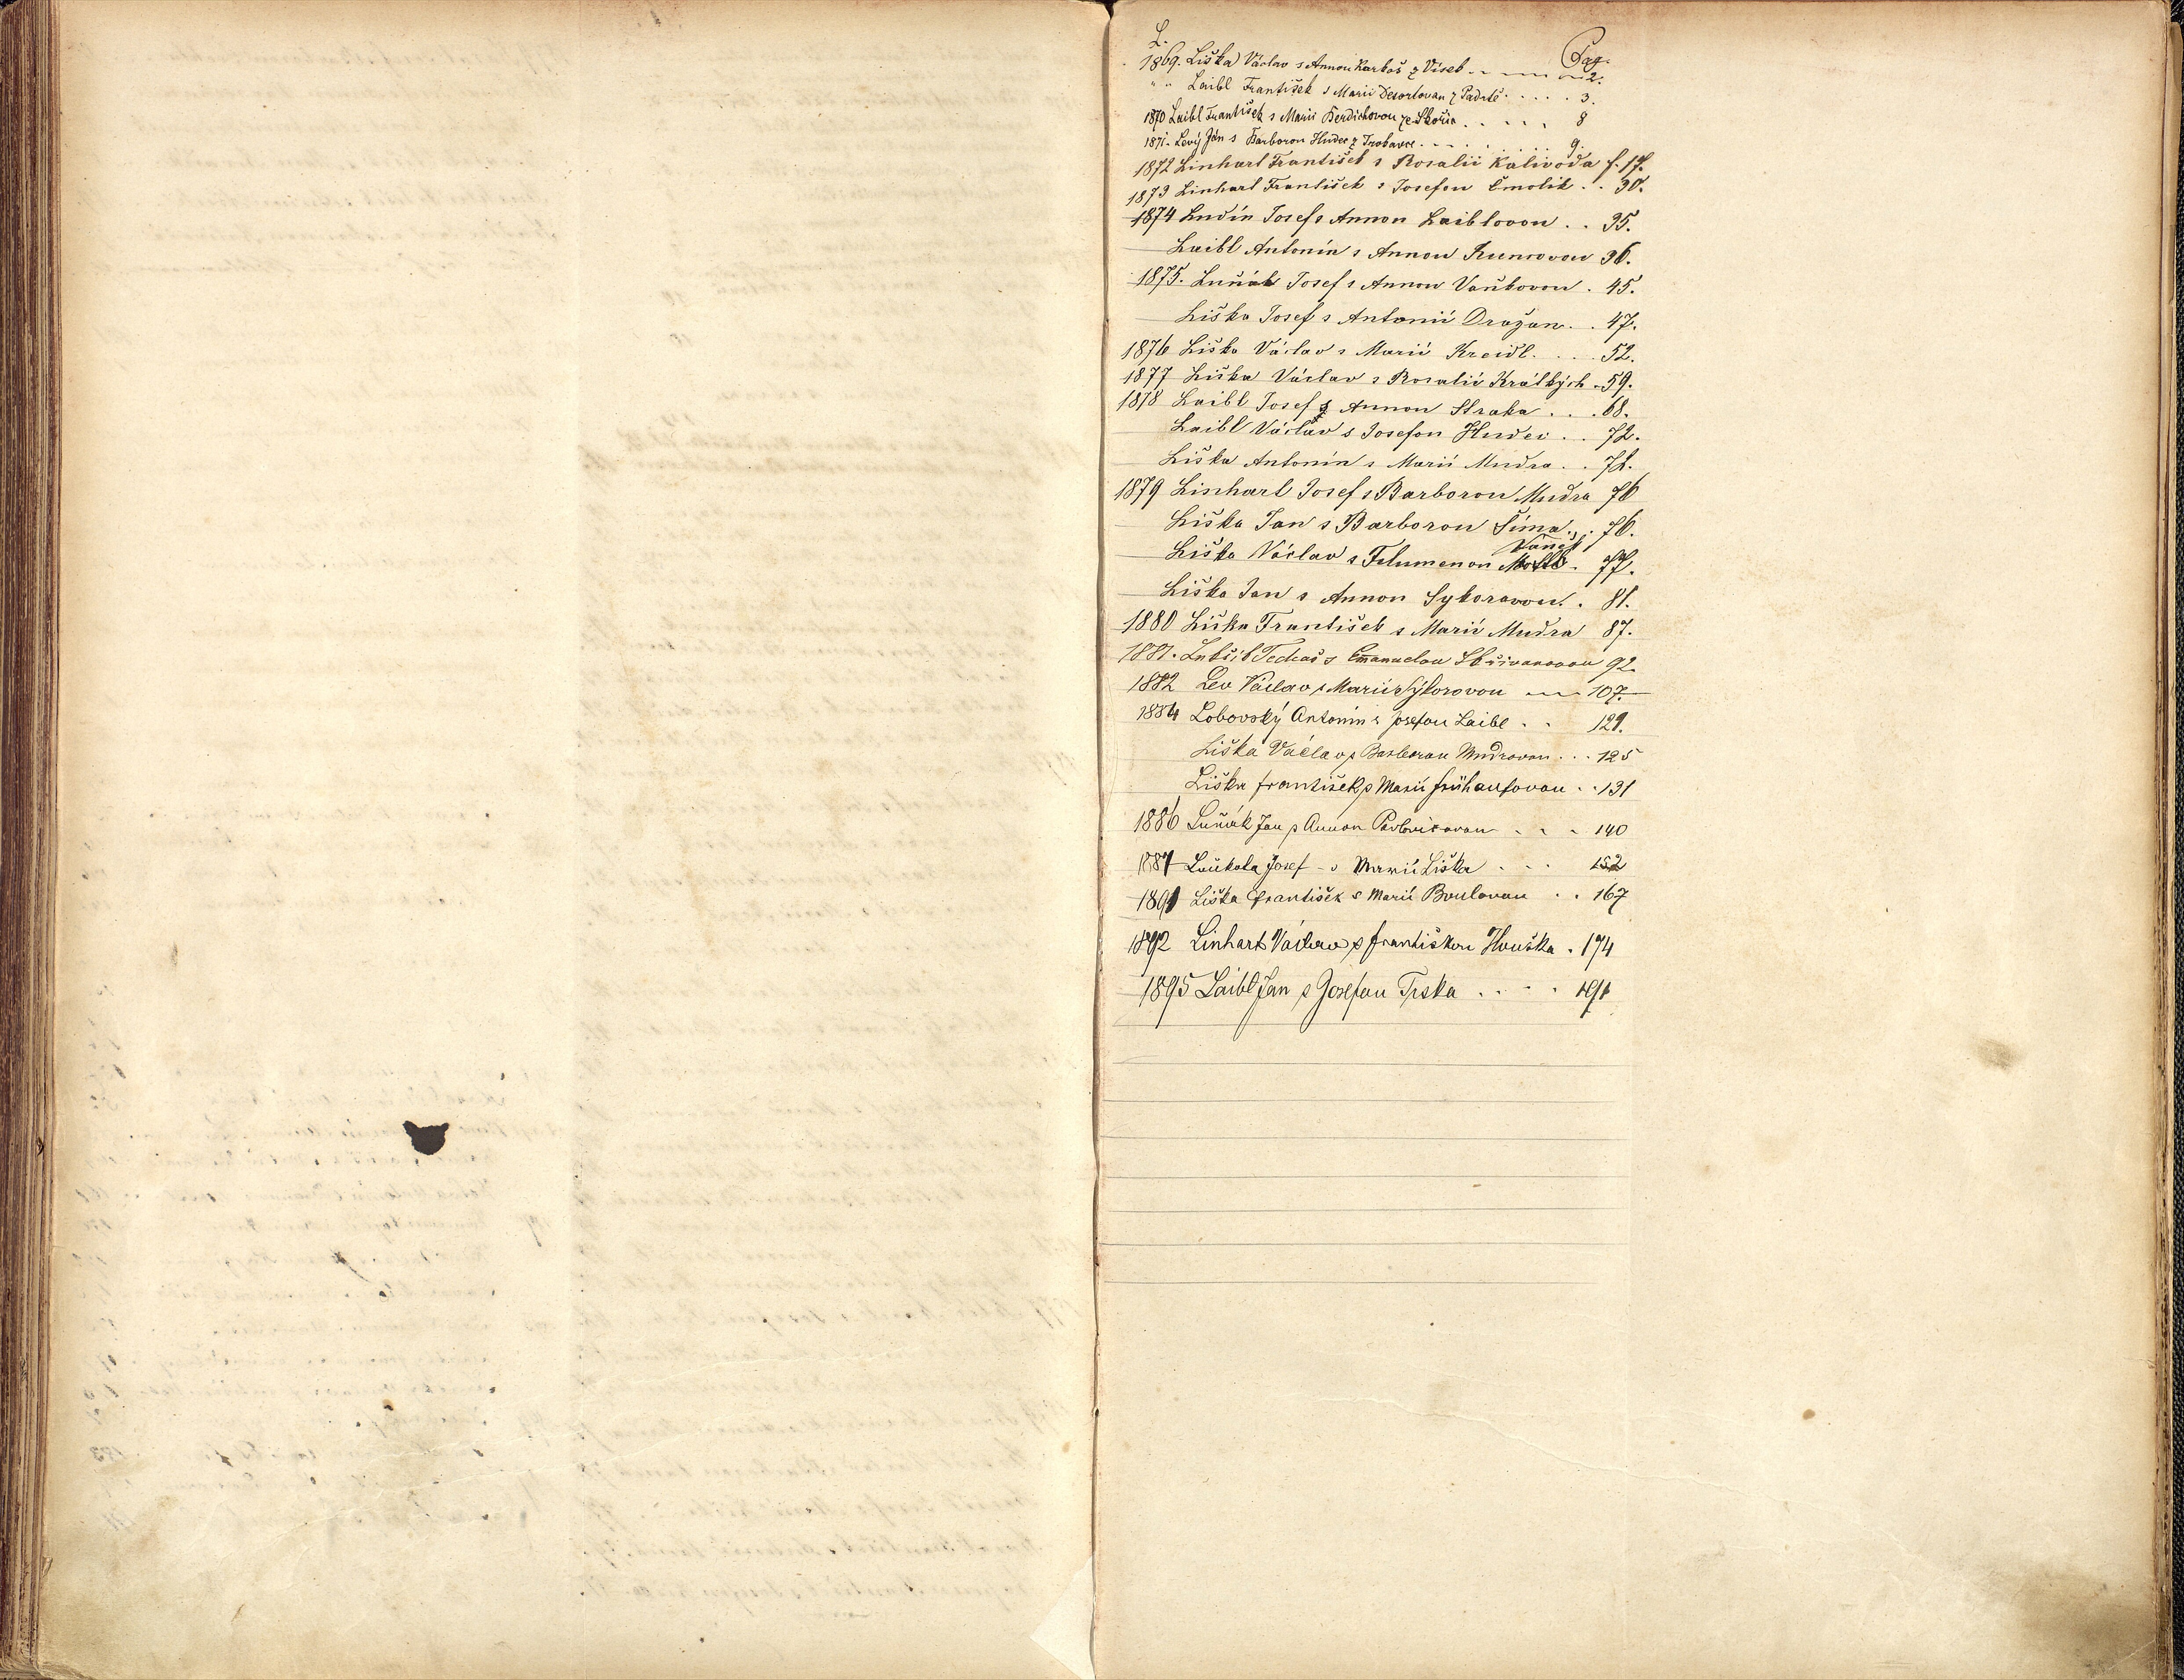 L. Pag.
1869. Liška Václav s Annou Karbos z Vísek 2.
" " Laibl František s Marií Desortovou z Padrtě . . . . . 3.
1870 Laibl František s Marií Berdichovou ze Skořic . . . . . 8
1871. Levý Jan s Barborou Hudec z Trokavce . . . . . 9.
1872 Linhart František s Rosalii Kalivoda f. 17.
1873 Linhart František s Josefou Smolik . . 30.
1874 Josef s Annou Laiblovou . . 35.
Laibl Antonín s Annou 36.
1875. Luňák Josef s Annou Vaňkovou . 45.
Liška Josef s Antonií Dražan . . 47.
1876 Liška Václav s Marií Kreidl . . . . 52.
1877 Liška Václav s Rosalií Králkých . 59.
1878 Laibl Josef s Annou Straka . . . 68.
Laibl Václav s Josefou Hudec . . 72.
Liška Antonín s Marií Mudra . . 72.
1879 Linhart Josef s Barborou Mudra 76
Liška Jan s Barborou Šíma . . 76.
Vaněk
Liška Václav s Filumenou 77.
Liška Jan s Annou Sykorovou . . 81.
1880 Liška František s Marií Mudra 87.
1881. s Emanuelou 92.
1882 Lev Václav s Marií Sýkorovou 107.
1884 Lobovský Antonín s Josefou Laibl . . 121.
Liška Václav s Barborou Mudrovou . . . 125
Liška František s Marií Frühaufovou . . 131
1886 Luňák Jan s Annou . . . 140
1887 Loukota Josef s Marií Liška . . . 152
1891 Liška František s Marií Boulovou . . 167
1892 Linhart Václav s Františkou Houška . 174
1895 Laibl Jan s Josefou Trska . . . . 191